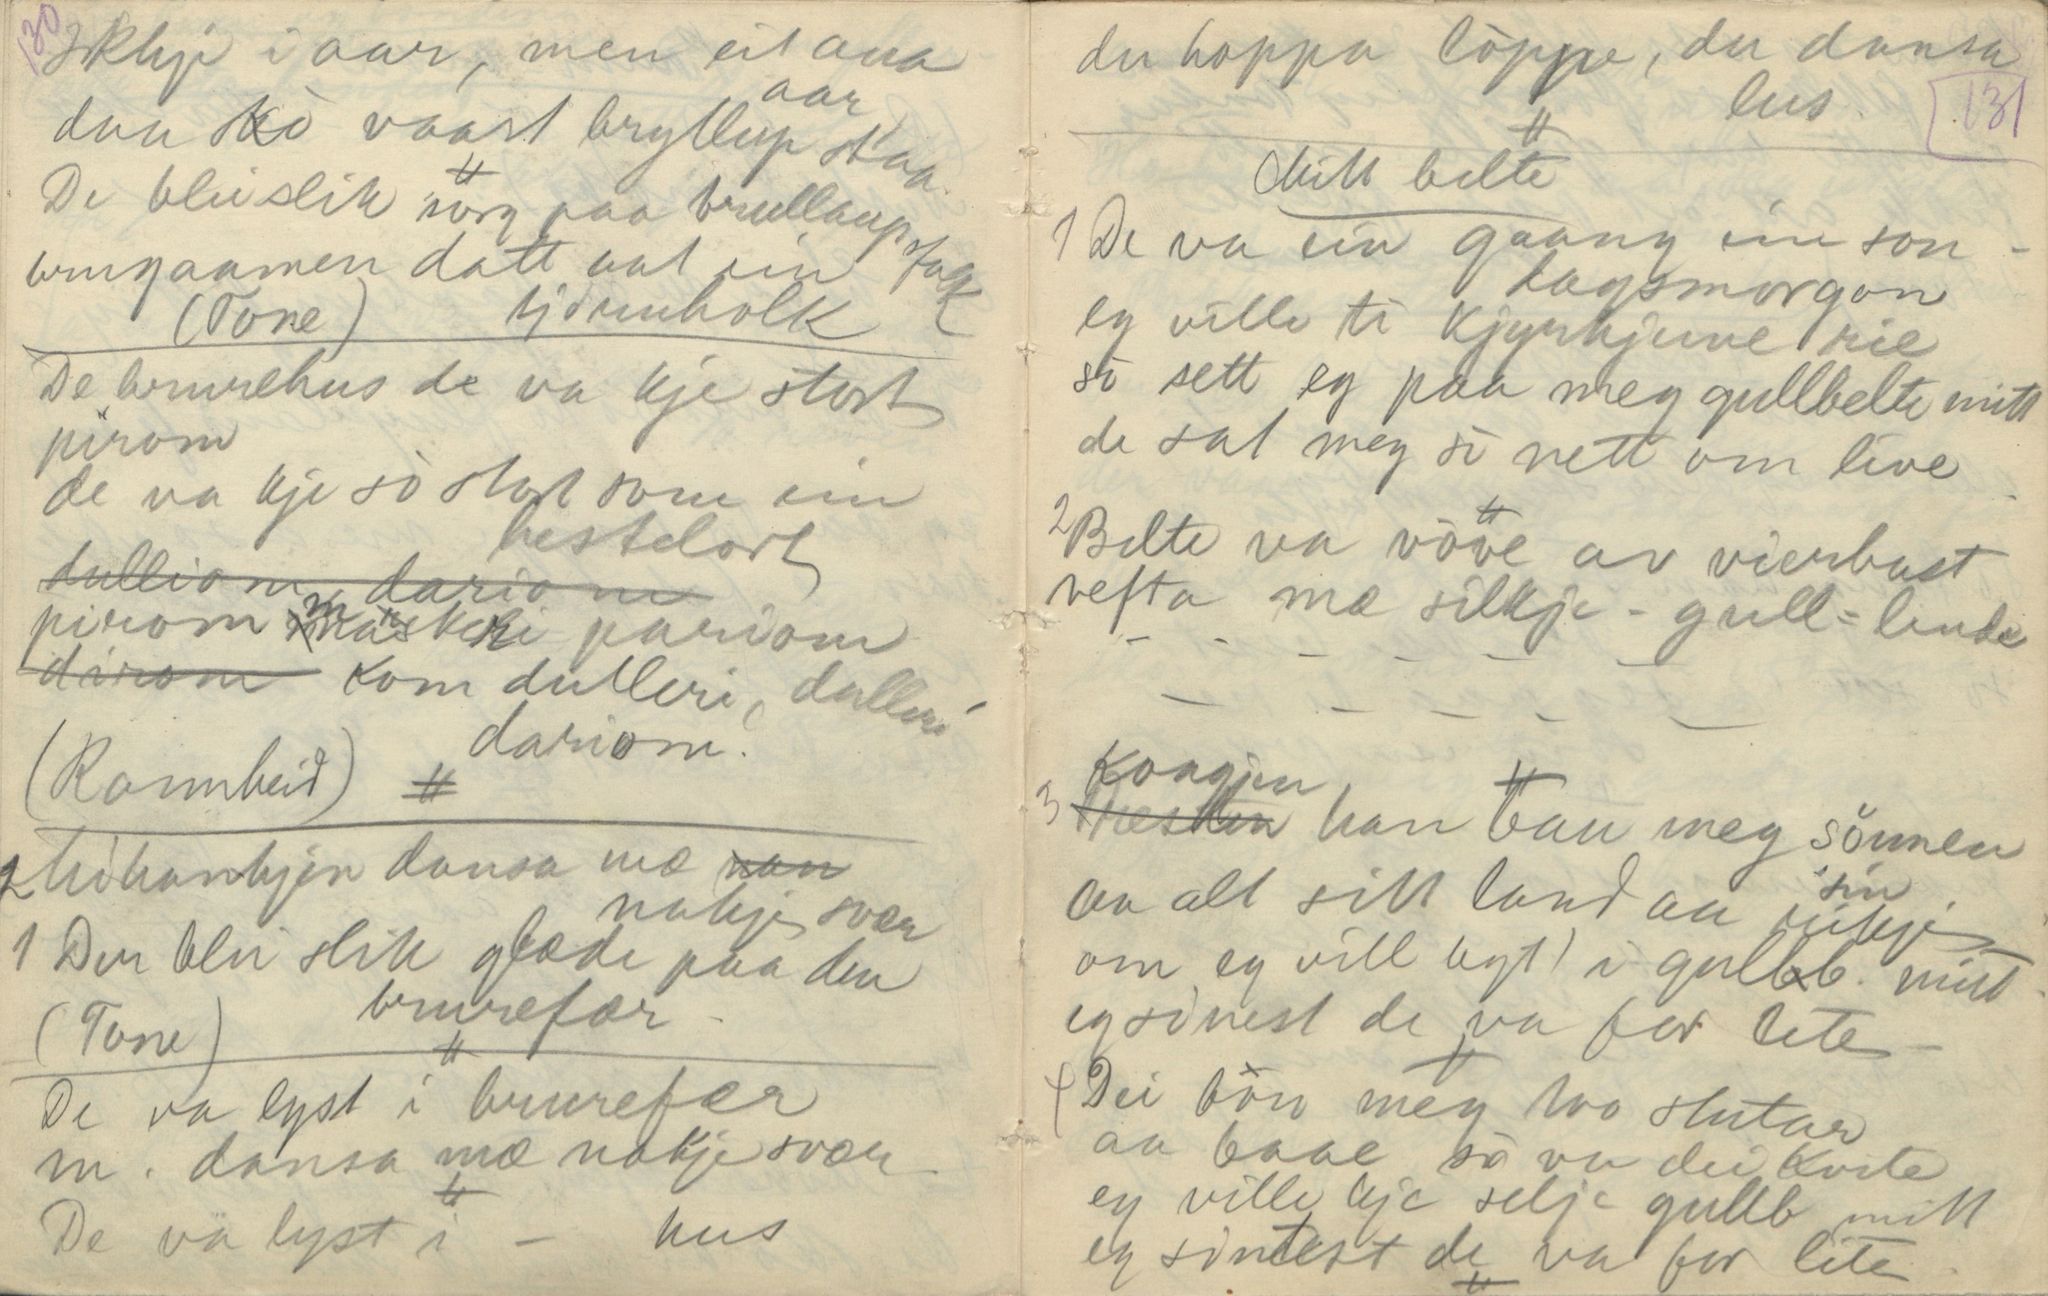 130
Ikkje i aar, men eit ana
aar
daa skò vaart bryllup staa
De blei slik sörg paa brullaups
brugaamen datt uut ein stakk
(Tone) tjöruholk
De brurehus de va kje stort
pirom
de va kje sò stort som ein
hestelort
dulliom, dariom
pirom pariom
dirom kom dulleri, dulleri
dariom.
(Rannheid)
2 dansa mæ nan
nakje svær
1 Der blei slik glæde paa den
(Tone) brurefær
De va lyst i brurefær
m. dansa mæ nakje svær
De va lyst i – hus
du hoppa löppe, du dansa
lus.
131
Mitt belte
1 De va ein gaang ein son-
dagsmorgon
eg ville ti kjyrkjune rie
sò sett eg paa meg gullbelte mitt
de sat meg sò nett om live
2 Belte va vòve av vierbast
vefta mæ silkje-gull-lende
– – – – – –
– – – – – –
Kongjen
3 han bau meg sönnen
sin
aa alt sitt land aa rikje
om eg vill bytt i gullb. mitt
eg sònest de va for lite
4 Dei bòu meg too stutar
aa baae sò va dei kvite
eg ville kje selje gullb mitt
eg sòntest de va for lite